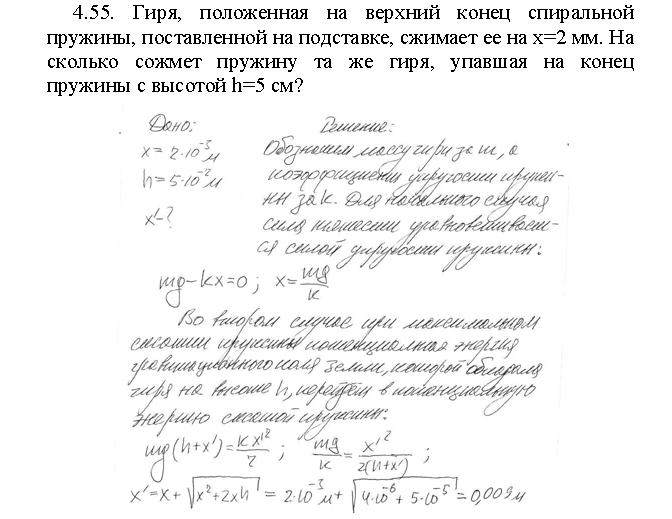 4.55. Гиря, положенная на верхний конец спиральной
пружины, поставленной на подставке, сжимает ее на x=2 мм. На
сколько сожмет пружину та же гиря, упавшая на конец
пружины с высотой h=5 см?
Дано:
x = 2·10⁻³ м
h = 5·10⁻² м
x'-?
Решение:
Обозначим массу гири за m, а
коэффициент упругости пружи-
ны за k. Для начального случая
сила тяжести уравновешивает-
ся силой упругости пружины:
mg-kx=0 ; x = mg/k
Во втором случае при максимальном
сжатии пружины потенциальная энергия
гравитационного поля земли, которой обладала
гиря на высоте h, перейдёт в потенциальную
энергию сжатой пружины:
mg(h+x') = kx'²/2 ; mg/k = x'²/2(h+x') ;
x' = x + √x²+2xh = 2·10⁻³ м + √4·10⁻⁶ + 5·10⁻⁵ = 0,009 м